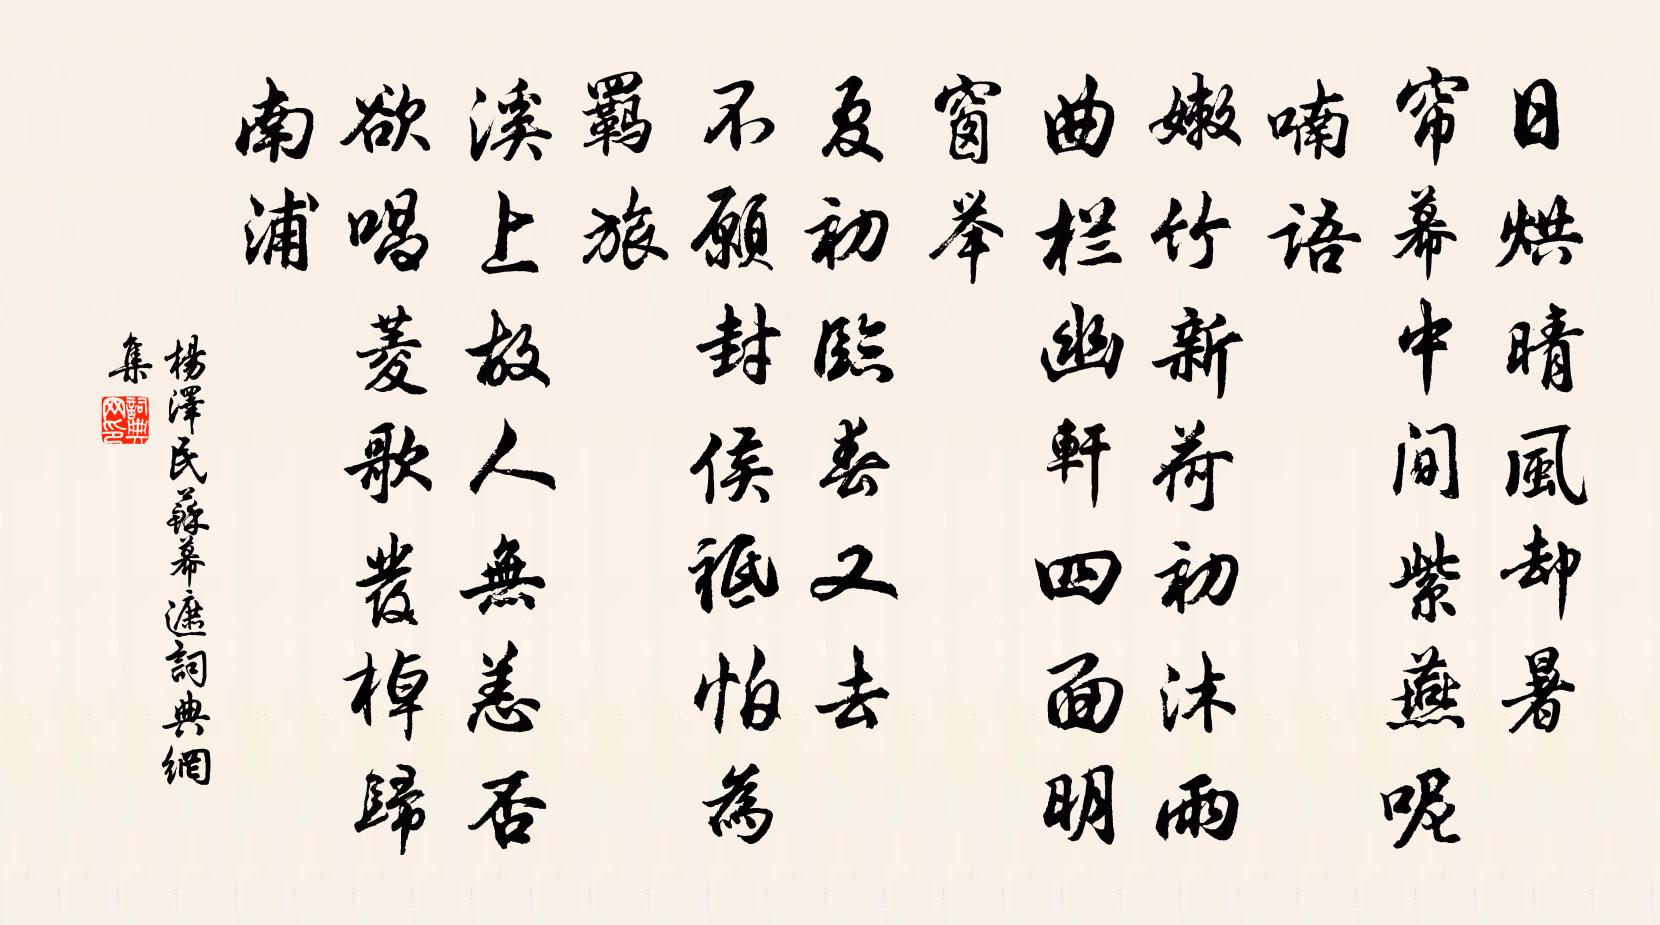 日烘晴風却暑
帘幕中间紫燕呢
喃語
嫩竹新荷初沐雨
曲栏幽軒四面明
窗举
夏初臨春又去
不願封侯祗怕為
羁旅
溪上故人無恙否
欲唱菱歌發棹歸
南浦
楊澤民蘇幕遮詞典網
集
詞典网印